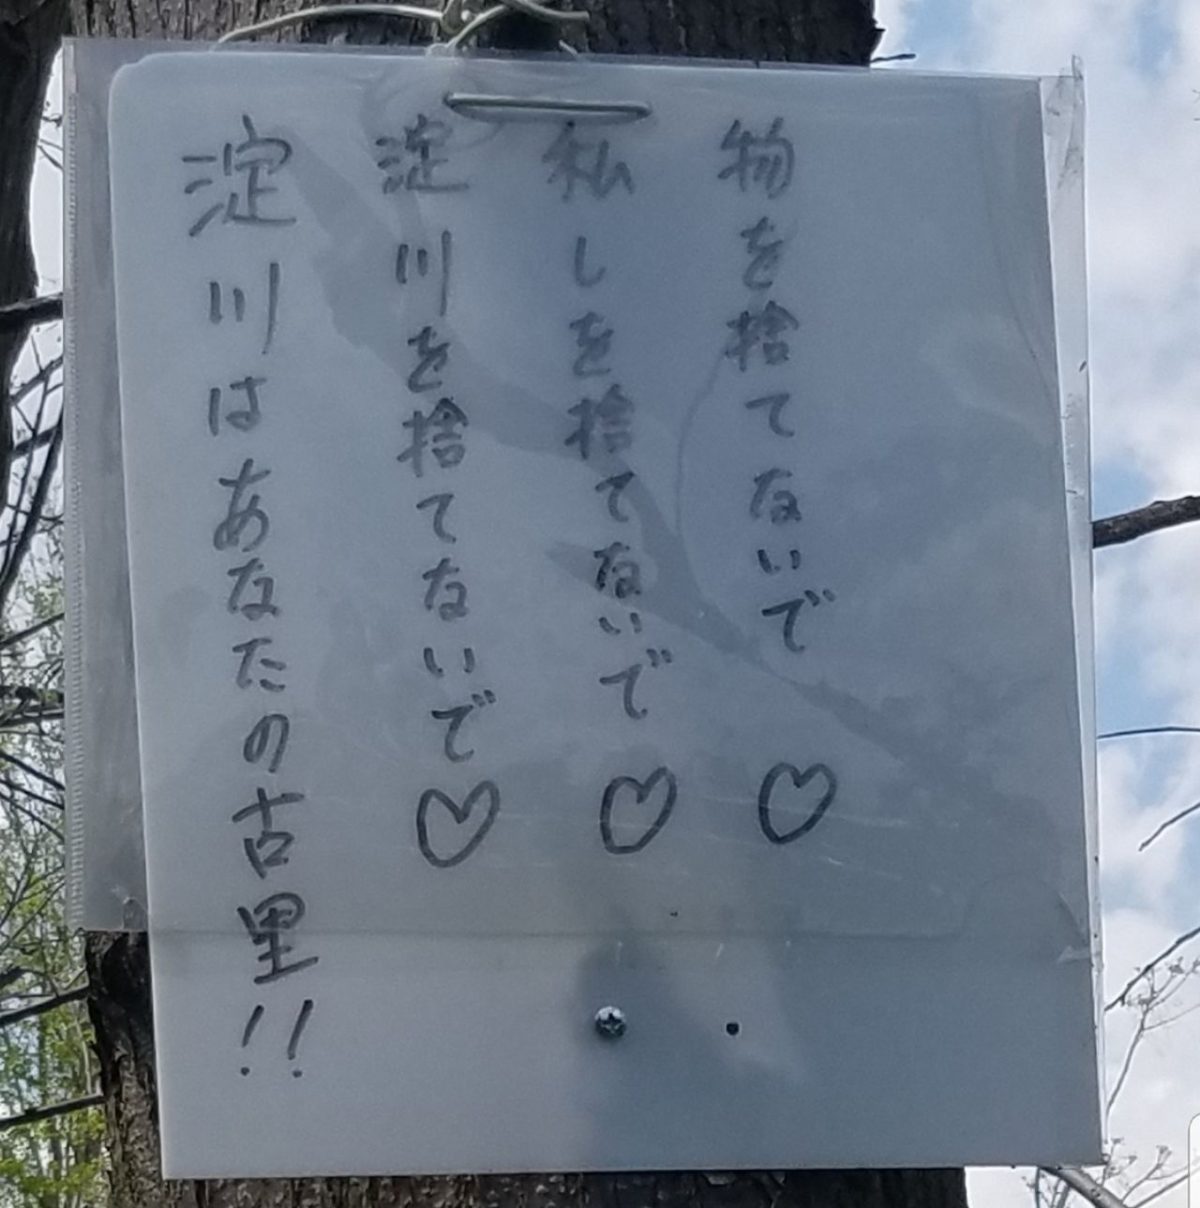 物を捨てないで♡
私しを捨てないで♡
淀川を捨てないで♡
淀川はあなたの古里!!